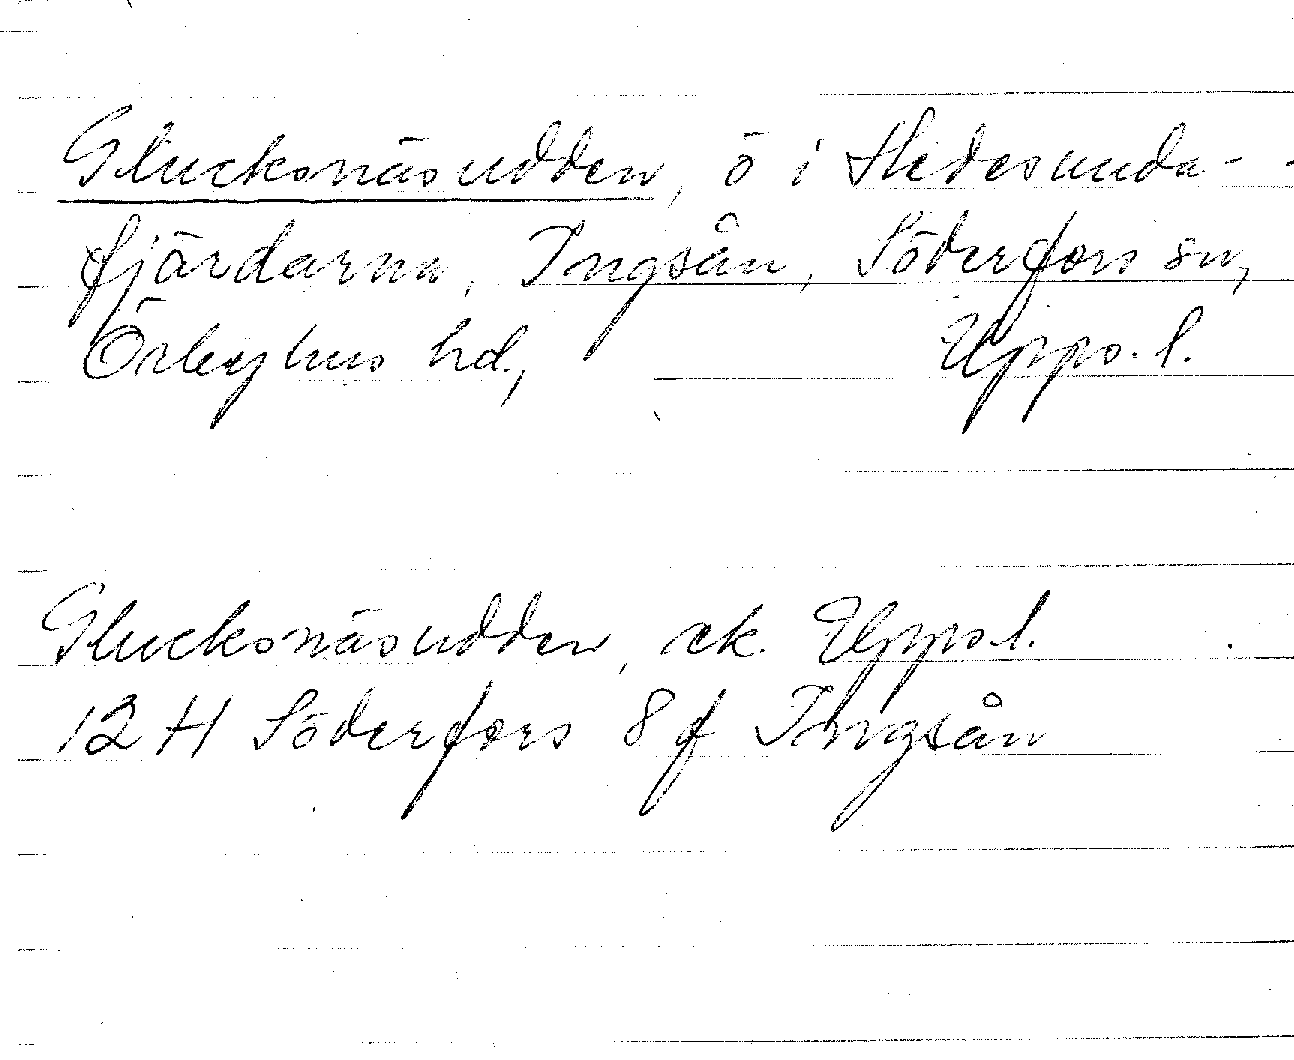 Glucksnäsudden, ö i Hedesunda-
fjärdarna, Ingsån, Söderfors sn,
Örbyhus hd, Upps. l.
Glucksnäsudden, ek. Upps l.
12 H Söderfors 8 f Ingsån